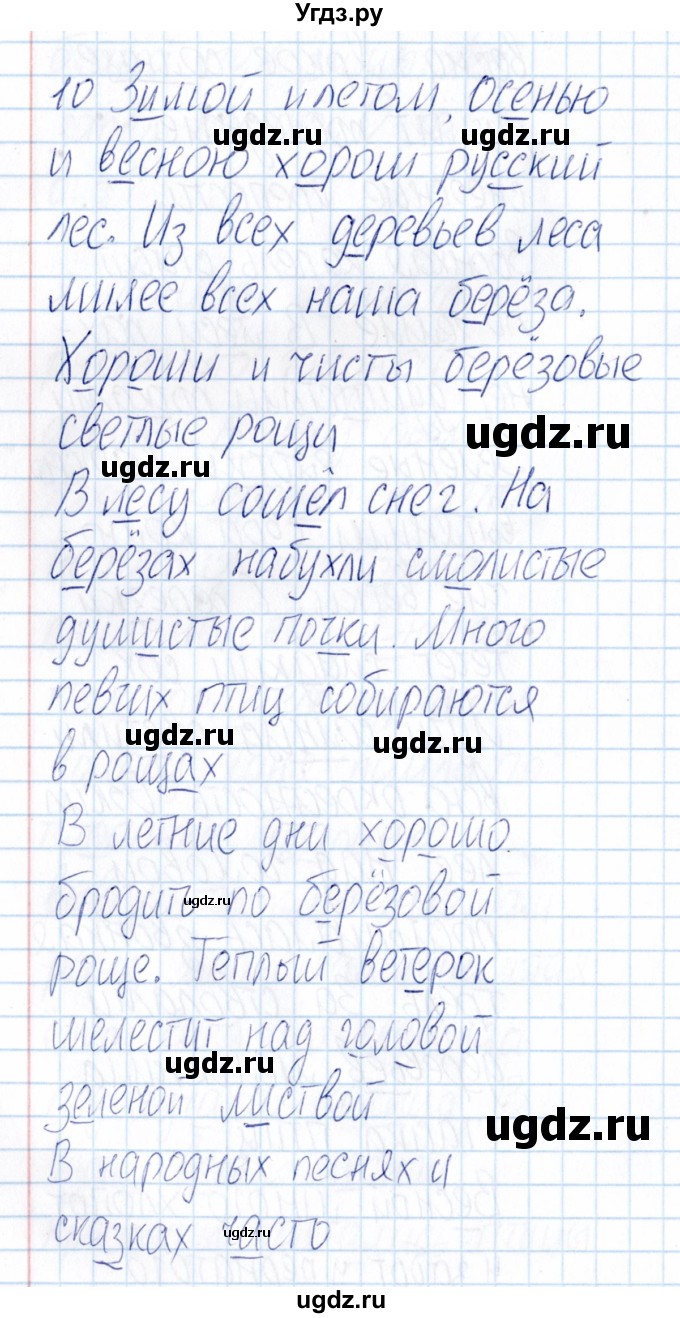 Угдз.ру
10 Зимой и летом, осенью
ugdz.ru ugdz.ru
и весною хорош русский
лес. Из всех деревьев леса
милее всех наша берёза.
Хороши и чисты берёзовые
светлые рощи
ugdz.ru
ugdz.ru
В лесу сошёл снег. На
берёзах набухли смолистые
душистые почки. Много
певчих птиц собираются
ugdz.ru ugdz.ru
в рощах
В летние дни хорошо
бродить по берёзовой
ugdz.ru
роще. Теплый ветерок
шелестит над головой
ugdz.ru
зеленой листвой
ugdz.ru
В народных песнях и
сказках часто
ugdz.ru
ugdz.ru